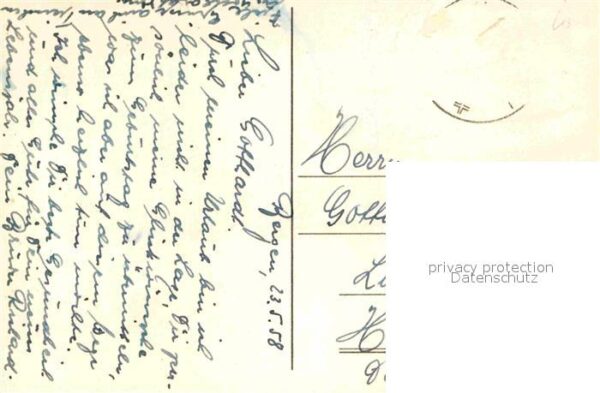 Bergen, 23.5.58
Lieber Gotthardt!
Durch meinen Urlaub bin ich
leider nicht in der Lage, Dir per-
sönlich meine Glückwünsche
zum Geburtstag zu übermitteln,
was ich aber auf diesem Wege
ebenso herzlich tun möchte.
Ich wünsche Dir beste Gesundheit
und alles Gute für Dein neues
Lebensjahr. Dein Bruder Richard.
Herrn
Gotth
L
H
D
privacy protection
Datenschutz